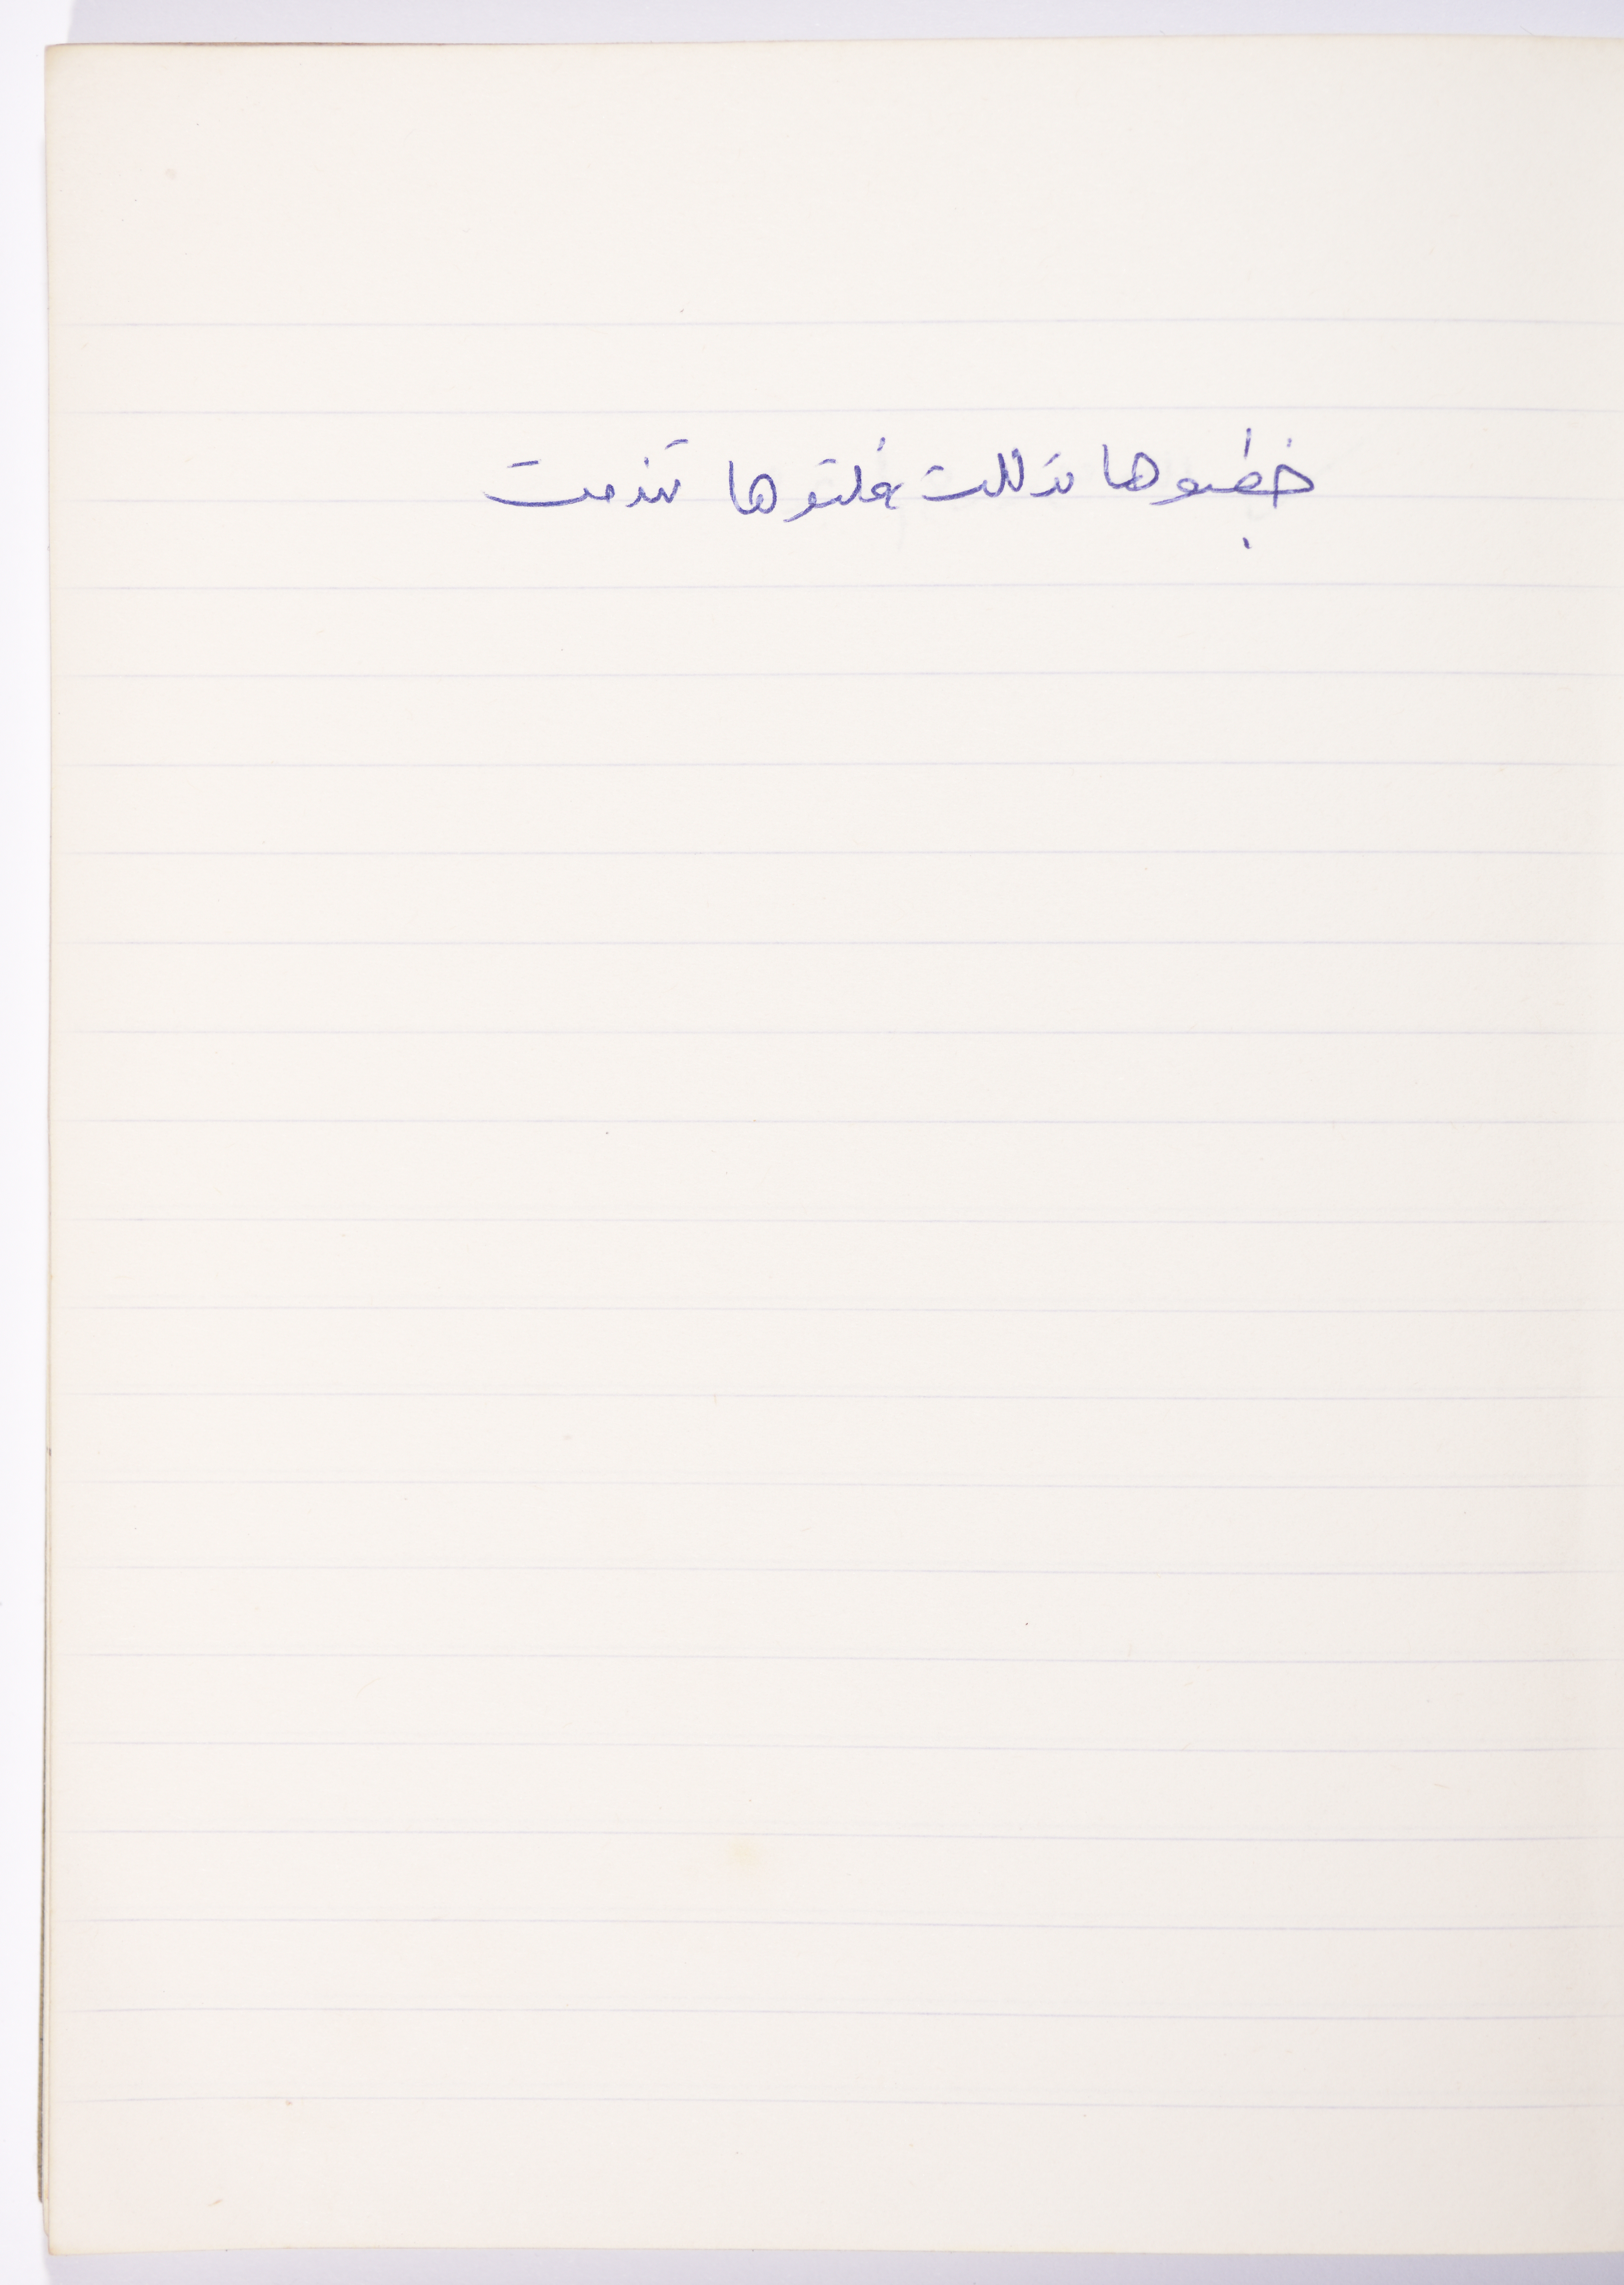 خطبوها تدللت فلتوها تندمت